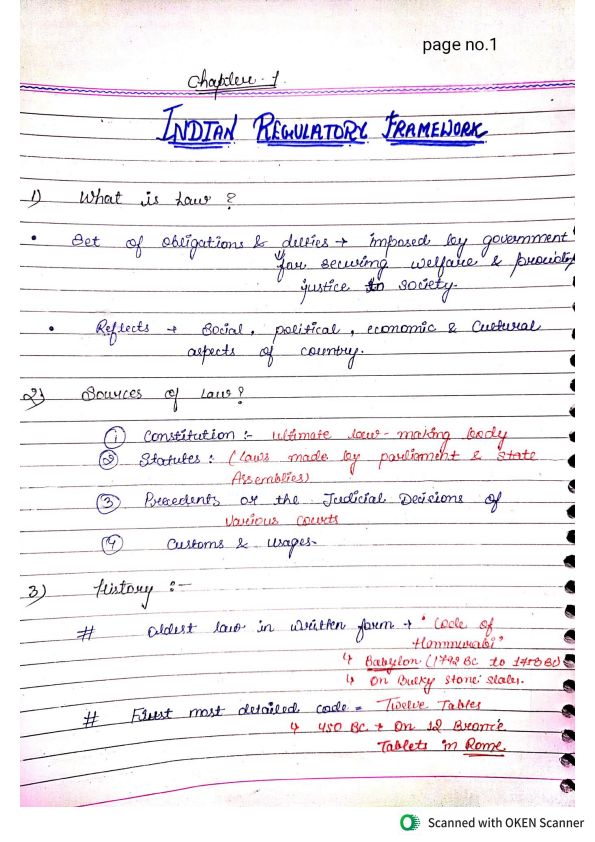 page no.1
Chapter - 1.
INDIAN REGULATORY FRAMEWORK
1) What is Law ?
• Set of obligations & duties → imposed by government
for securing welfare & providing
justice to society.
• Reflects → Social, political, economic & Cultural
aspects of country.
2) Sources of Law?
① Constitution :- Ultimate law-making body
② Statutes : (Laws made by parliament & State
Assemblies)
③ Precedents or the Judicial Decisions of
various courts
④ Customs & usages.
3) History :-
# Oldest law in written form → "Code of
Hammurabi"
↳ Babylon (1792 BC to 1750 BC)
↳ On Bulky stone slabs.
# First most detailed code = Twelve Tables
↳ 450 BC → On 12 Bronze
Tablets in Rome
Scanned with OKEN Scanner